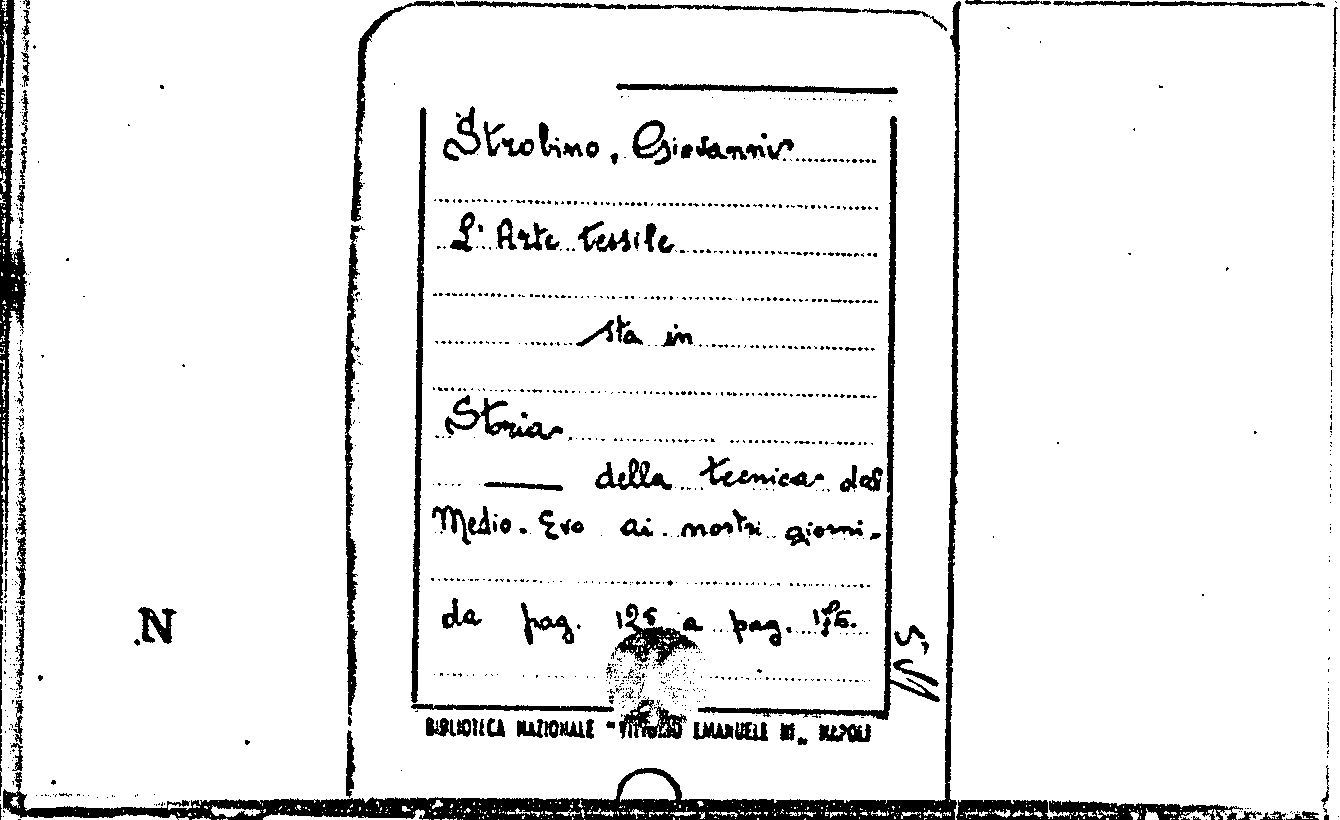 Strobino, Giovanni
L'Arte tessile
sta in
Storia
della tecnica dal
Medio-Evo ai nostri giorni.
da pag. 125 a pag.
BIBLIOTECA NAZIONALE "VITTORIO EMANUELE III" NAPOLI
N